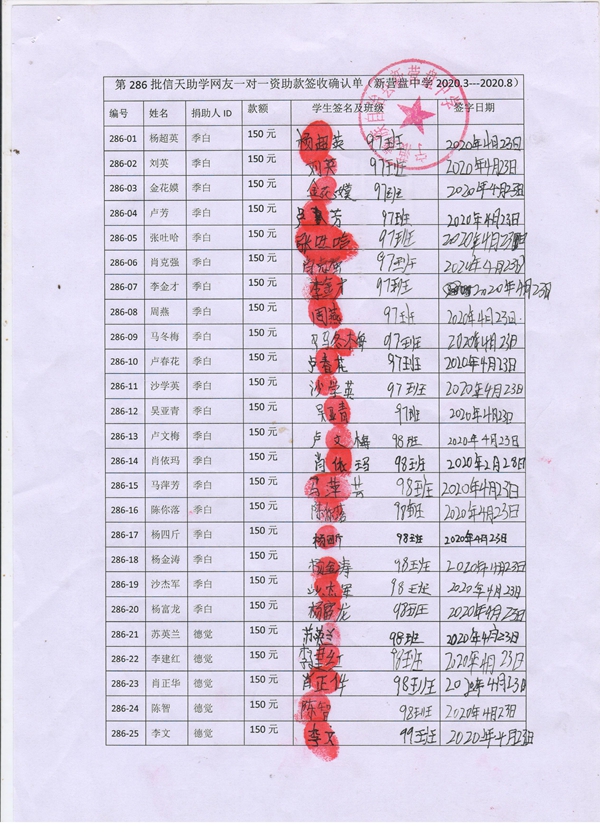 第 286 批信天助学网友一对一资助款签收确认单（新营盘中学 2020.3---2020.8）
编号 姓名 捐助人 ID 款额 学生签名及班级 签字日期
286-01 杨超英 季白 150 元 杨超英 97班 2020年4月23日
286-02 刘英 季白 150 元 刘英 97班 2020年4月23日
286-03 金花嫫 季白 150 元 金花嫫 97班 2020年4月23日
286-04 卢芳 季白 150 元 卢芳 97班 2020年4月23日
286-05 张吐哈 季白 150 元 张吐哈 97班 2020年4月23日
286-06 肖克强 季白 150 元 肖克强 97班 2020年4月23日
286-07 李金才 季白 150 元 李金才 97班 2020年4月23日
286-08 周燕 季白 150 元 周燕 97班 2020年4月23日
286-09 马冬梅 季白 150 元 马冬梅 97班 2020年4月23日
286-10 卢春花 季白 150 元 卢春花 97班 2020年4月23日
286-11 沙学英 季白 150 元 沙学英 97班 2020年4月23日
286-12 吴亚青 季白 150 元 吴亚青 97班 2020年4月23日
286-13 卢文梅 季白 150 元 卢文梅 98班 2020年4月23日
286-14 肖依玛 季白 150 元 肖依玛 98班 2020年2月28日
286-15 马萍芳 季白 150 元 马萍芸 98班 2020年4月23日
286-16 陈你落 季白 150 元 陈你落 98班 2020年4月23日
286-17 杨四斤 季白 150 元 杨四斤 98班 2020年4月23日
286-18 杨金涛 季白 150 元 杨金涛 98班 2020年4月23日
286-19 沙杰军 季白 150 元 沙杰军 98班 2020年4月23日
286-20 杨富龙 季白 150 元 杨富龙 98班 2020年4月23日
286-21 苏英兰 德觉 150 元 苏英兰 98班 2020年4月23日
286-22 李建红 德觉 150 元 李建红 98班 2020年4月23日
286-23 肖正华 德觉 150 元 肖正华 98班 2020年4月23日
286-24 陈智 德觉 150 元 陈智 98班 2020年4月23日
286-25 李文 德觉 150 元 李文 99班 2020年4月23日